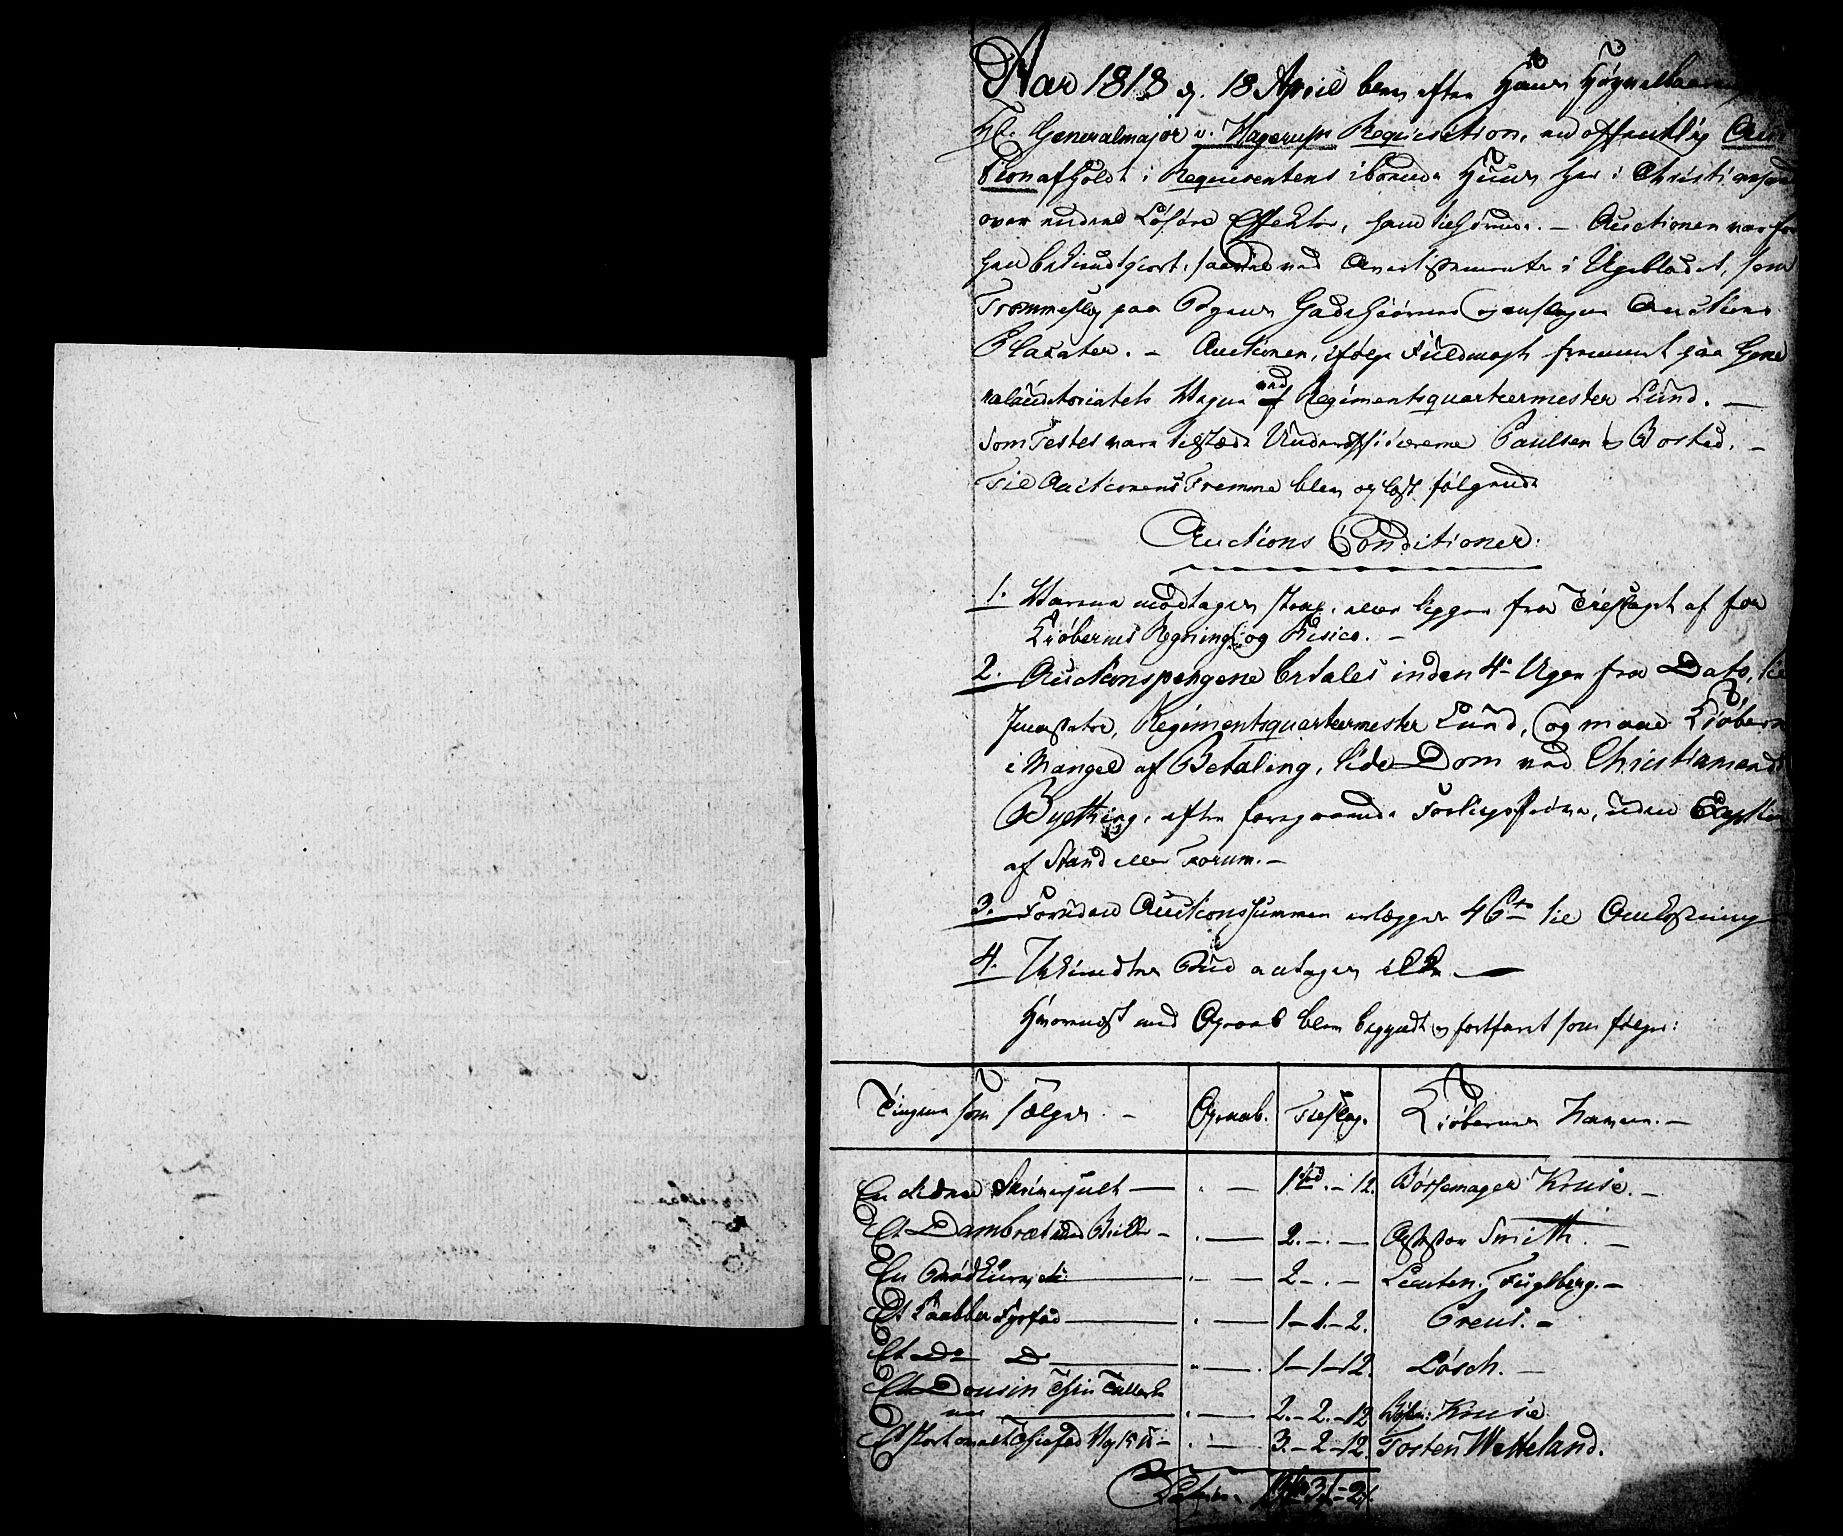 Aar 1818 d. 18 April blev efter Hans Høyvelbaarenhed
Hr. Generalmajor v. Hagerups Requisition, en offentlig Auc
tion afholdt i Requirentens iboende Huus her i Christiansand
over endeel Løsøre Effekter, ham tilhørende. – Auctionen var for
hen bekiendtgiort, saavel ved Avertissementer i Ugebladet, som
Trommeslag paa Byens Gadehiørner og anslagne Auctions
Placater. – Auctionen, ifølge Fuldmagt fremmet paa Gene
ralauditoriatets Vegne ved Regimentsquarteermester Lund. –
Som Testes vare tilstæde Underofficererne Paulsen og Bosted. –
Til Auctionens Fremme blev oplæst følgende
Auctions Conditioner:
1. Varene modtages strax, eller ligger fra Tilslaget af for
Kiøbernes Regning og Risico. –
2. Auctionspengene betales inden 4 Uger fra Dato, til
Incassator, Regimentsquarteermester Lund, og maae Kiøberne
i Mangel af Betaling, lide Dom ved Christiansands
Byething, efter foregaaende Forligsprøve, uden Exception
af Stand eller Forum. –
3. Foruden Auctionssummen erlægges 4 Pct. til Omkostninger
4. Ukiendtes Bud antages ikke. –
Hvornæst med Opraab blev begyndt og fortfaret som følger:
Tingene som sælges – Opraab. Tilslag. Kiøbernes Navne. –
En Skriverpult – . – 1 – 12. Bøssemager Kruse. –
Et Dambræt med Brikker – . – 2. – . – Assessor Smith. –
En Brødkurv – . – 2 – . – Lieuten. Fuglberg. –
Et Kaabber Fyrfad – . – 1 – 1. – 2. Preus. –
Et Do D – . – 1 – 1 – 12. Løsch. –
Et Dousin Thin Tallerk
ner – . – 2. – 2. – 12 Bøssm: Kruse
Et stort ovalt Thinfad Veg 15 – . – 3. – 2 – 12. Torten Wetteland.
Latus